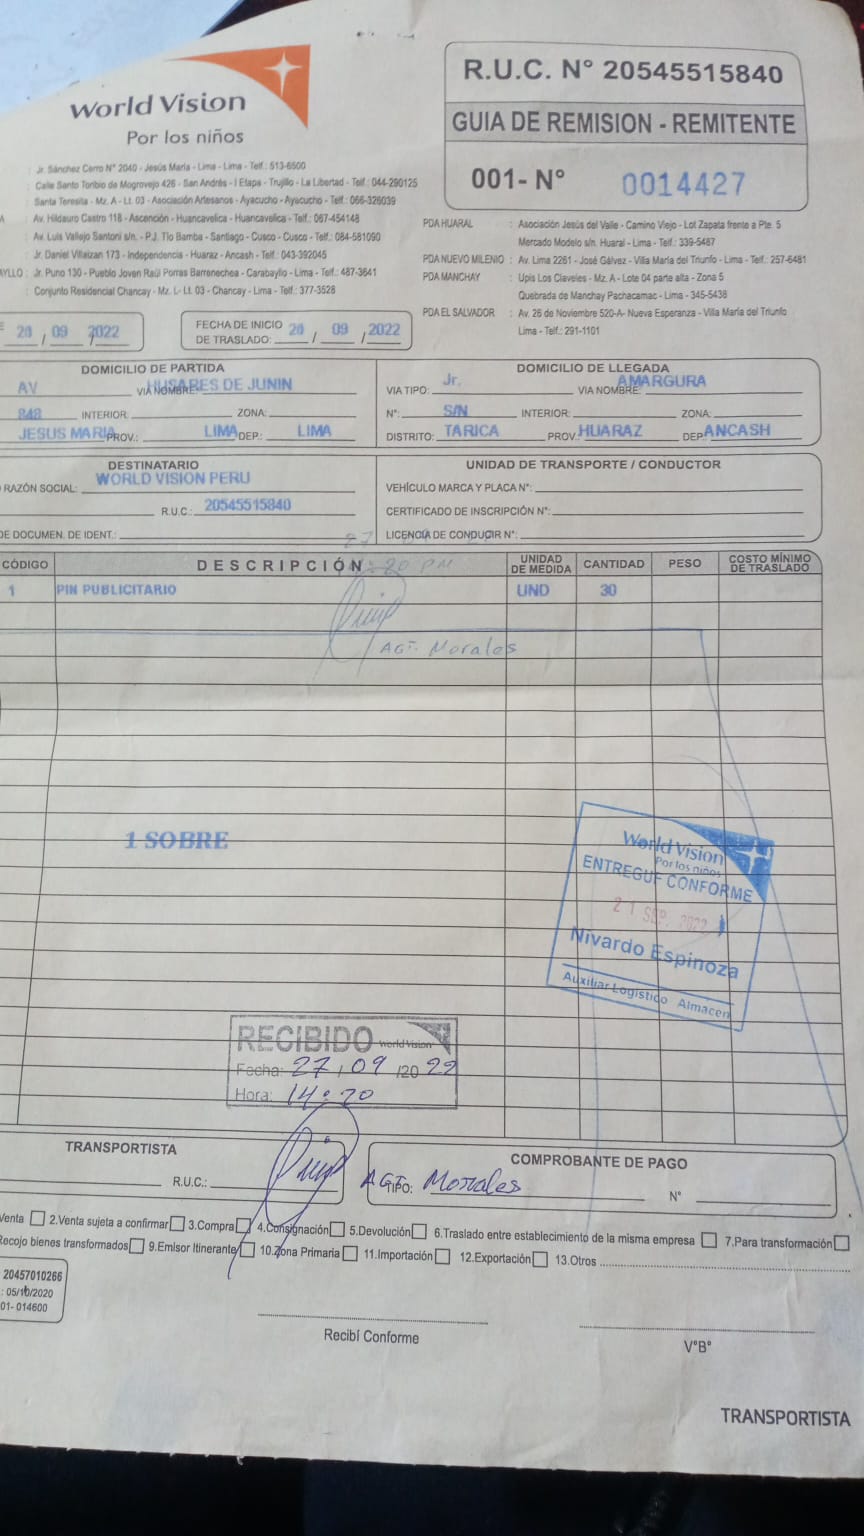 World Vision
Por los niños
R.U.C. N° 20545515840
GUIA DE REMISION - REMITENTE
001- N° 0014427
: Jr. Sánchez Cerro N° 2040 - Jesús María - Lima - Lima - Telf.: 513-6500
: Calle Santo Toribio de Mogrovejo 426 - San Andrés - I Etapa - Trujillo - La Libertad - Telf.: 044-290125
Santa Teresita - Mz. A - Lt. 03 - Asociación Artesanos - Ayacucho - Ayacucho - Telf.: 066-326039
A : Av. Hildauro Castro 118 - Ascención - Huancavelica - Huancavelica - Telf.: 067-454148
: Av. Luis Vallejo Santoni s/n. - P.J. Tío Bamba - Santiago - Cusco - Cusco - Telf.: 084-581090
: Jr. Daniel Villaizan 173 - Independencia - Huaraz - Ancash - Telf.: 043-392045
AYLLO : Jr. Puno 130 - Pueblo Joven Raúl Porras Barrenechea - Carabayllo - Lima - Telf.: 487-3641
: Conjunto Residencial Chancay - Mz. L- Lt. 03 - Chancay - Lima - Telf.: 377-3528
PDA HUARAL : Asociación Jesús del Valle - Camino Viejo - Lot Zapata frente a Pte. 5
Mercado Modelo s/n. Huaral - Lima - Telf.: 339-5487
PDA NUEVO MILENIO : Av. Lima 2261 - José Gálvez - Villa María del Triunfo - Lima - Telf.: 257-6481
PDA MANCHAY : Upis Los Claveles - Mz. A - Lote 04 parte alta - Zona 5
Quebrada de Manchay Pachacamac - Lima - 345-5438
PDA EL SALVADOR : Av. 26 de Noviembre 520-A- Nueva Esperanza - Villa María del Triunfo
Lima - Telf.: 291-1101
E 20 / 09 / 2022
FECHA DE INICIO DE TRASLADO: 20 / 09 / 2022
DOMICILIO DE PARTIDA
AV VIA NOMBRE: HUSARES DE JUNIN
848 INTERIOR: ZONA:
JESUS MARIA PROV.: LIMA DEP.: LIMA
DOMICILIO DE LLEGADA
VIA TIPO: Jr. VIA NOMBRE: AMARGURA
N°: S/N INTERIOR: ZONA:
DISTRITO: TARICA PROV. HUARAZ DEP. ANCASH
DESTINATARIO
RAZÓN SOCIAL: WORLD VISION PERU
R.U.C.: 20545515840
DE DOCUMEN. DE IDENT.:
UNIDAD DE TRANSPORTE / CONDUCTOR
VEHÍCULO MARCA Y PLACA N°:
CERTIFICADO DE INSCRIPCIÓN N°:
LICENCIA DE CONDUCIR N°:
CÓDIGO DESCRIPCIÓN UNIDAD DE MEDIDA CANTIDAD PESO COSTO MÍNIMO DE TRASLADO
1 PIN PUBLICITARIO UND 30
20 PM
AGT. Morales
1 SOBRE
World Vision
Por los niños
ENTREGUE CONFORME
21 SEP. 2022
Nivardo Espinoza
Auxiliar Logístico Almacen
RECIBIDO World Vision
Fecha: 27 / 09 /20 22
Hora: 14:20
TRANSPORTISTA
R.U.C.:
COMPROBANTE DE PAGO
AGT. Morales
TIPO: N°
Venta 2.Venta sujeta a confirmar 3.Compra 4.Consignación 5.Devolución 6.Traslado entre establecimiento de la misma empresa 7.Para transformación
Recojo bienes transformados 9.Emisor Itinerante 10.Zona Primaria 11.Importación 12.Exportación 13.Otros
20457010266
: 05/10/2020
01- 014600
Recibí Conforme
V°B°
TRANSPORTISTA